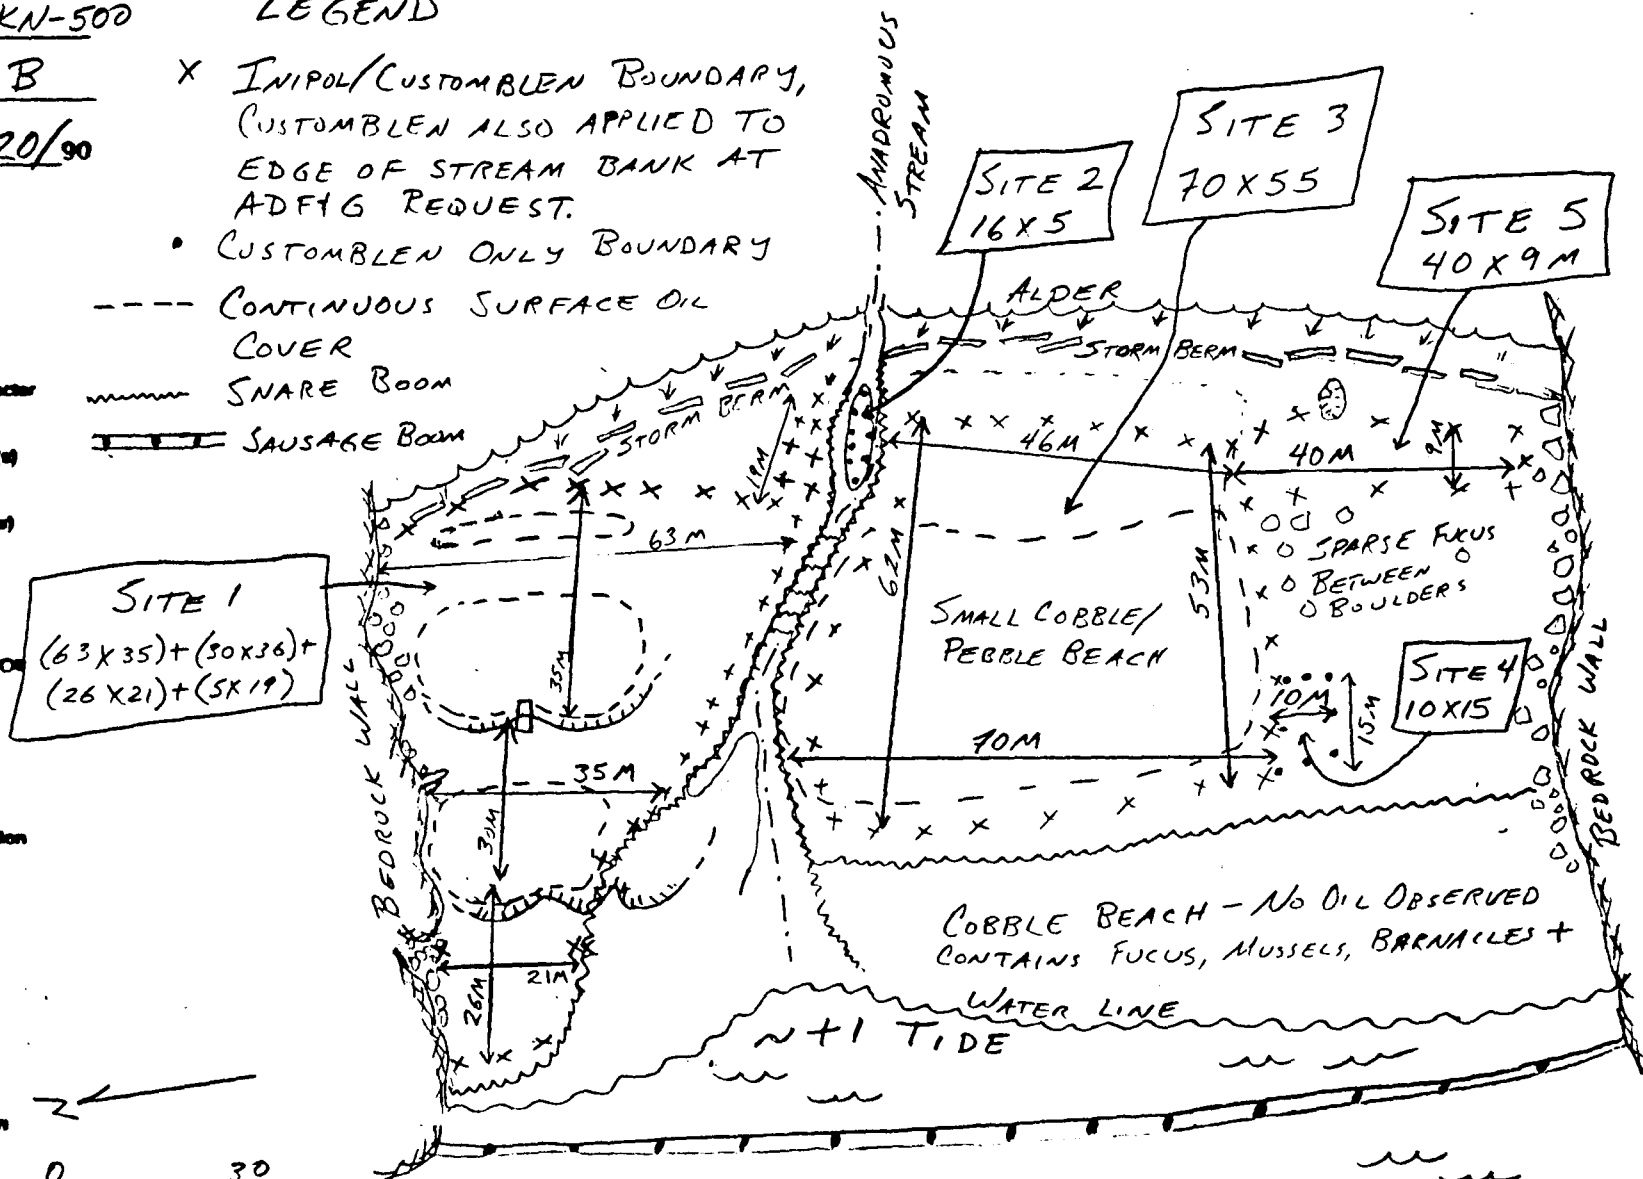 KN-500
B
20/90
LEGEND
X INIPOL/CUSTOMBLEN BOUNDARY,
CUSTOMBLEN ALSO APPLIED TO
EDGE OF STREAM BANK AT
ADF&G REQUEST.
• CUSTOMBLEN ONLY BOUNDARY
---- CONTINUOUS SURFACE OIL
COVER
SNARE BOOM
SAUSAGE BOOM
ANADROMOUS
STREAM
SITE 2
16 X 5
SITE 3
70 X 55
SITE 5
40 X 9M
ALDER
STORM BERM
STORM BERM
19M
46M
40M
9M
63M
62M
53M
35M
SPARSE FUCUS
BETWEEN
BOULDERS
SITE 1
(63 X 35) + (30 X 36) +
(26 X 21) + (5 X 19)
SMALL COBBLE/
PEBBLE BEACH
SITE 4
10 X 15
10M
15M
70M
35M
30M
BEDROCK WALL
BEDROCK WALL
21M
26M
COBBLE BEACH - NO OIL OBSERVED
CONTAINS FUCUS, MUSSELS, BARNACLES +
WATER LINE
~ +1 TIDE
N
0 30